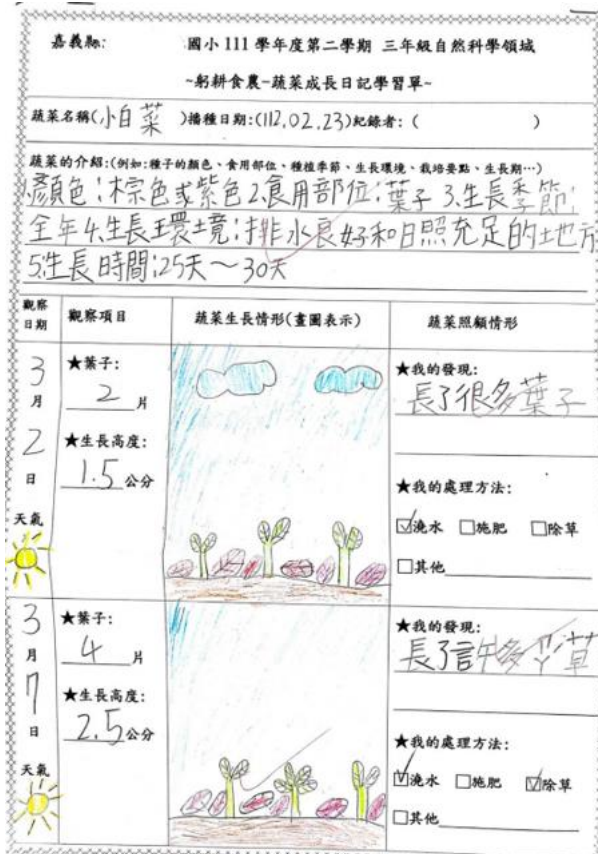 嘉義縣: 國小 111 學年度第二學期 三年級自然科學領域
~躬耕食農-蔬菜成長日記學習單~
蔬菜名稱(小白菜 )播種日期:(112.02.23)紀錄者: ( )
蔬菜的介紹:(例如:種子的顏色、食用部位、種植季節、生長環境、栽培要點、生長期…)
1.顏色:棕色或紫色 2.食用部位:葉子 3.生長季節:
全年 4.生長環境:排水良好和日照充足的土地方
5.生長時間:25天~30天
觀察日期 觀察項目 蔬菜生長情形(畫圖表示) 蔬菜照顧情形
3月2日
天氣
★葉子:
2 片
★生長高度:
1.5 公分
★我的發現:
長了很多葉子
★我的處理方法:
☑澆水 □施肥 □除草
□其他
3月7日
天氣
★葉子:
4 片
★生長高度:
2.5 公分
★我的發現:
長了許多草
★我的處理方法:
☑澆水 □施肥 ☑除草
□其他